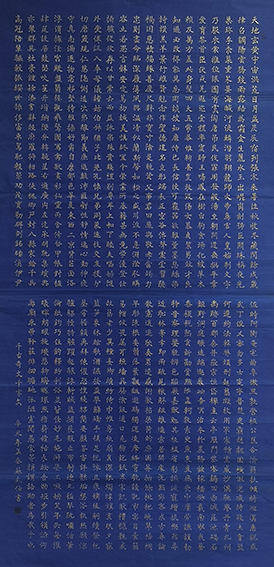 天地玄黃宇宙洪荒日月盈昃辰宿列張寒來暑往秋收冬藏閏餘成歲
律召調陽雲騰致雨露結為霜金生麗水玉出崑岡劍號巨闕珠稱夜光
果珍李柰菜重芥薑海鹹河淡鱗潛羽翔龍師火帝鳥官人皇始制文字
乃服衣裳推位讓國有虞陶唐弔民伐罪周發殷湯坐朝問道垂拱平章
愛育黎首臣伏戎羌遐邇壹體率賓歸王鳴鳳在樹白駒食場化被草木
賴及萬方蓋此身髮四大五常恭惟鞠養豈敢毀傷女慕貞潔男效才良
知過必改得能莫忘罔談彼短靡恃己長信使可覆器欲難量墨悲絲染
詩讚羔羊景行維賢克念作聖德建名立形端表正空谷傳聲虛堂習聽
禍因惡積福緣善慶尺璧非寶寸陰是競資父事君曰嚴與敬孝當竭力
忠則盡命臨深履薄夙興溫凊似蘭斯馨如松之盛川流不息淵澄取映
容止若思言辭安定篤初誠美慎終宜令榮業所基籍甚無竟學優登仕
攝職從政存以甘棠去而益詠樂殊貴賤禮別尊卑上和下睦夫唱婦隨
外受傅訓入奉母儀諸姑伯叔猶子比兒孔懷兄弟同氣連枝交友投分
切磨箴規仁慈隱惻造次弗離節義廉退顛沛匪虧性靜情逸心動神疲
守真志滿逐物意移堅持雅操好爵自縻都邑華夏東西二京背邙面洛
浮渭據涇宮殿盤鬱樓觀飛驚圖寫禽獸畫彩仙靈丙舍傍啟甲帳對楹
肆筵設席鼓瑟吹笙升階納陛弁轉疑星右通廣內左達承明既集墳典
亦聚群英杜稿鍾隸漆書壁經府羅將相路俠槐卿戶封八縣家給千兵
高冠陪輦驅轂振纓世祿侈富車駕肥輕策功茂實勒碑刻銘磻溪伊尹
佐時阿衡奄宅曲阜微旦孰營桓公匡合濟弱扶傾綺迴漢惠說感
武丁俊乂密勿多士寔寧晉楚更霸趙魏困橫假途滅虢踐土會盟
何遵約法韓弊煩刑起翦頗牧用軍最精宣威沙漠馳譽丹青九州
禹跡百郡秦并嶽宗泰岱禪主云亭雁門紫塞雞田赤城昆池碣石
鉅野洞庭曠遠綿邈巖岫杳冥治本於農務茲稼穡俶載南畝我藝
黍稷稅熟貢新勸賞黜陟孟軻敦素史魚秉直庶幾中庸勞謙謹敕
聆音察理鑑貌辨色貽厥嘉猷勉其祗植省躬譏誡寵增抗極殆辱
近恥林皋幸即兩疏見機解組誰逼索居閒處沉默寂寥求古尋論
散慮逍遙欣奏累遣慼謝歡招渠荷的歷園莽抽條枇杷晚翠梧桐
早凋陳根委翳落葉飄颻遊鵾獨運凌摩絳霄耽讀翫市寓目囊箱
易輶攸畏屬耳垣牆具膳餐飯適口充腸飽飫烹宰飢厭糟糠親戚
故舊老少異糧妾御績紡侍巾帷房紈扇圓潔銀燭煒煌晝眠夕寐
藍筍象床弦歌酒讌接杯舉觴矯手頓足悅豫且康嫡後嗣續祭祀
烝嘗稽顙再拜悚懼恐惶牋牒簡要顧答審詳骸垢想浴執熱願涼
驢騾犢特駭躍超驤誅斬賊盜捕獲叛亡布射遼丸嵇琴阮嘯恬筆
倫紙鈞巧任釣釋紛利俗並皆佳妙毛施淑姿工顰妍笑年矢每催
曦暉朗曜璇璣懸斡晦魄環照指薪修祜永綏吉劭矩步引領俯仰
廊廟束帶矜莊徘徊瞻眺孤陋寡聞愚蒙等誚謂語助者焉哉乎也
千古奇文千字文